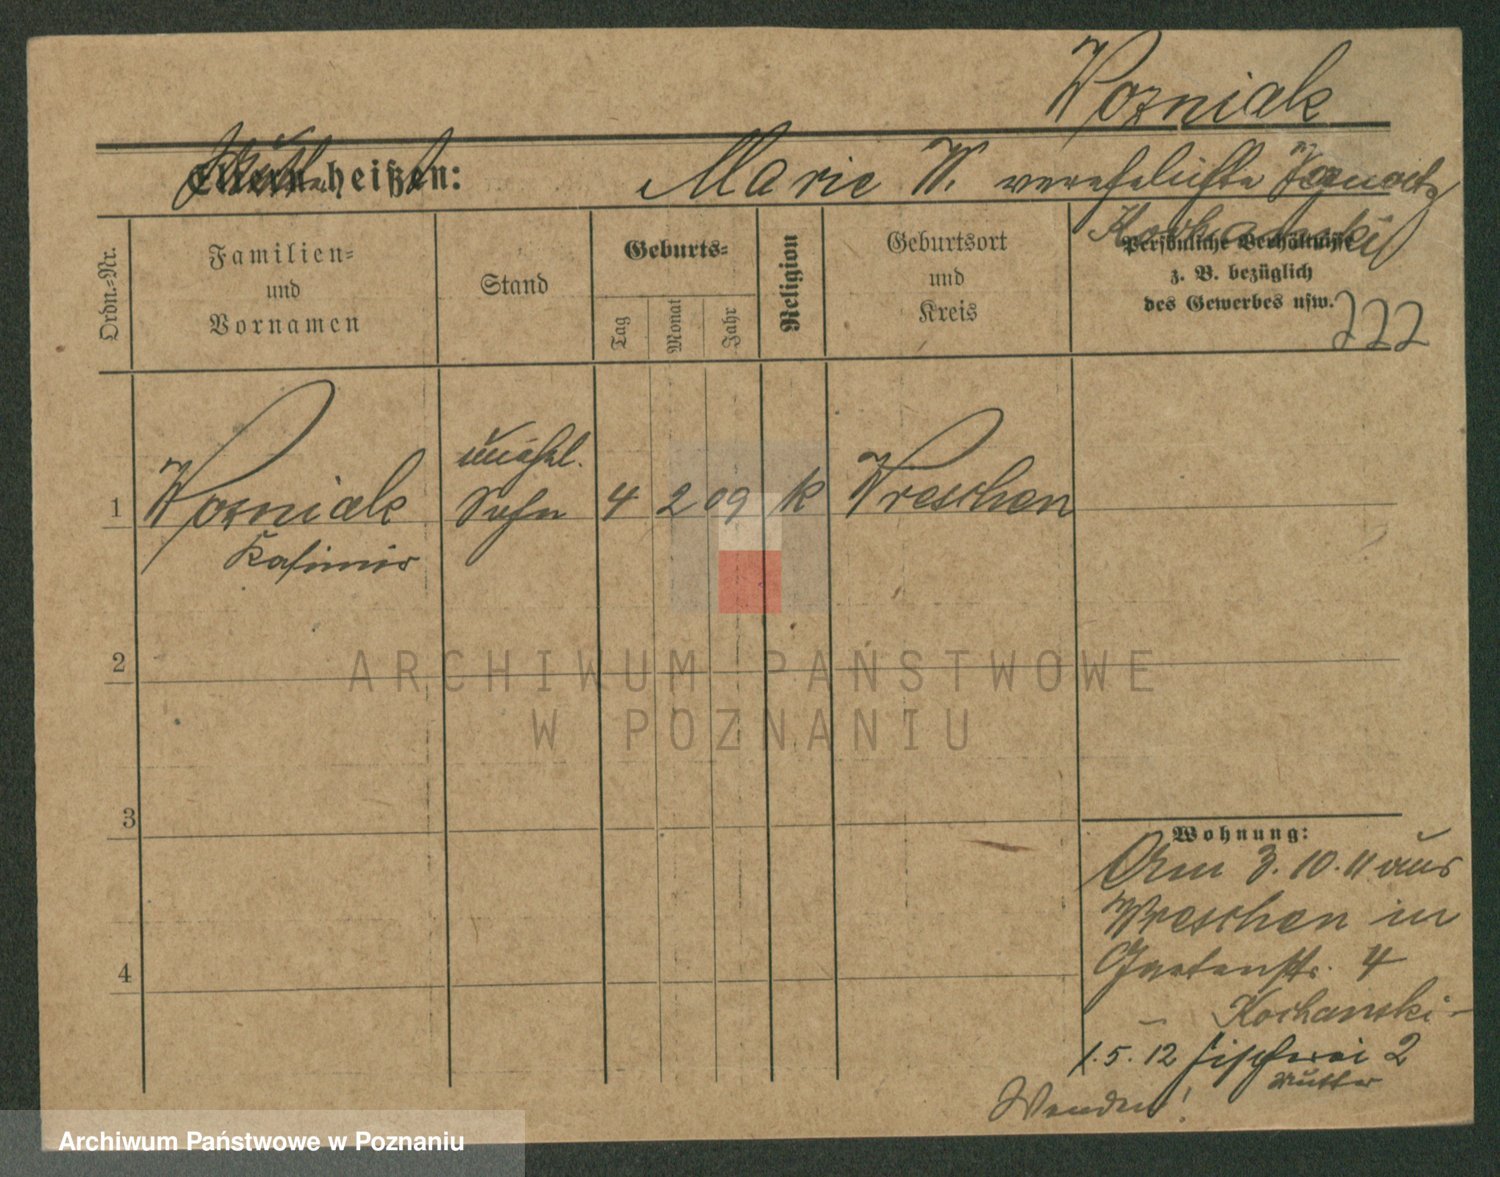 Wozniak
Eltern heißen: Marie W. verehelichte Ignatz
Kochanski
Ordn.-Nr.
Familien-
und
Vornamen
Stand
Geburts-
Tag
Monat
Jahr
Religion
Geburtsort
und
Kreis
Persönliche Verhältnisse
z. B. bezüglich
des Gewerbes usw.
222
1 Wozniak unehel. Sohn 4 2 09 k Wreschen
Kasimir
2
3
4
Wohnung:
Am 3.10.11 aus
Wreschen in
Gartenstr. 4
Kochanski -
1.5.12 Fischerei 2
Mutter
Wenden!
ARCHIWUM PAŃSTWOWE
W POZNANIU
Archiwum Państwowe w Poznaniu